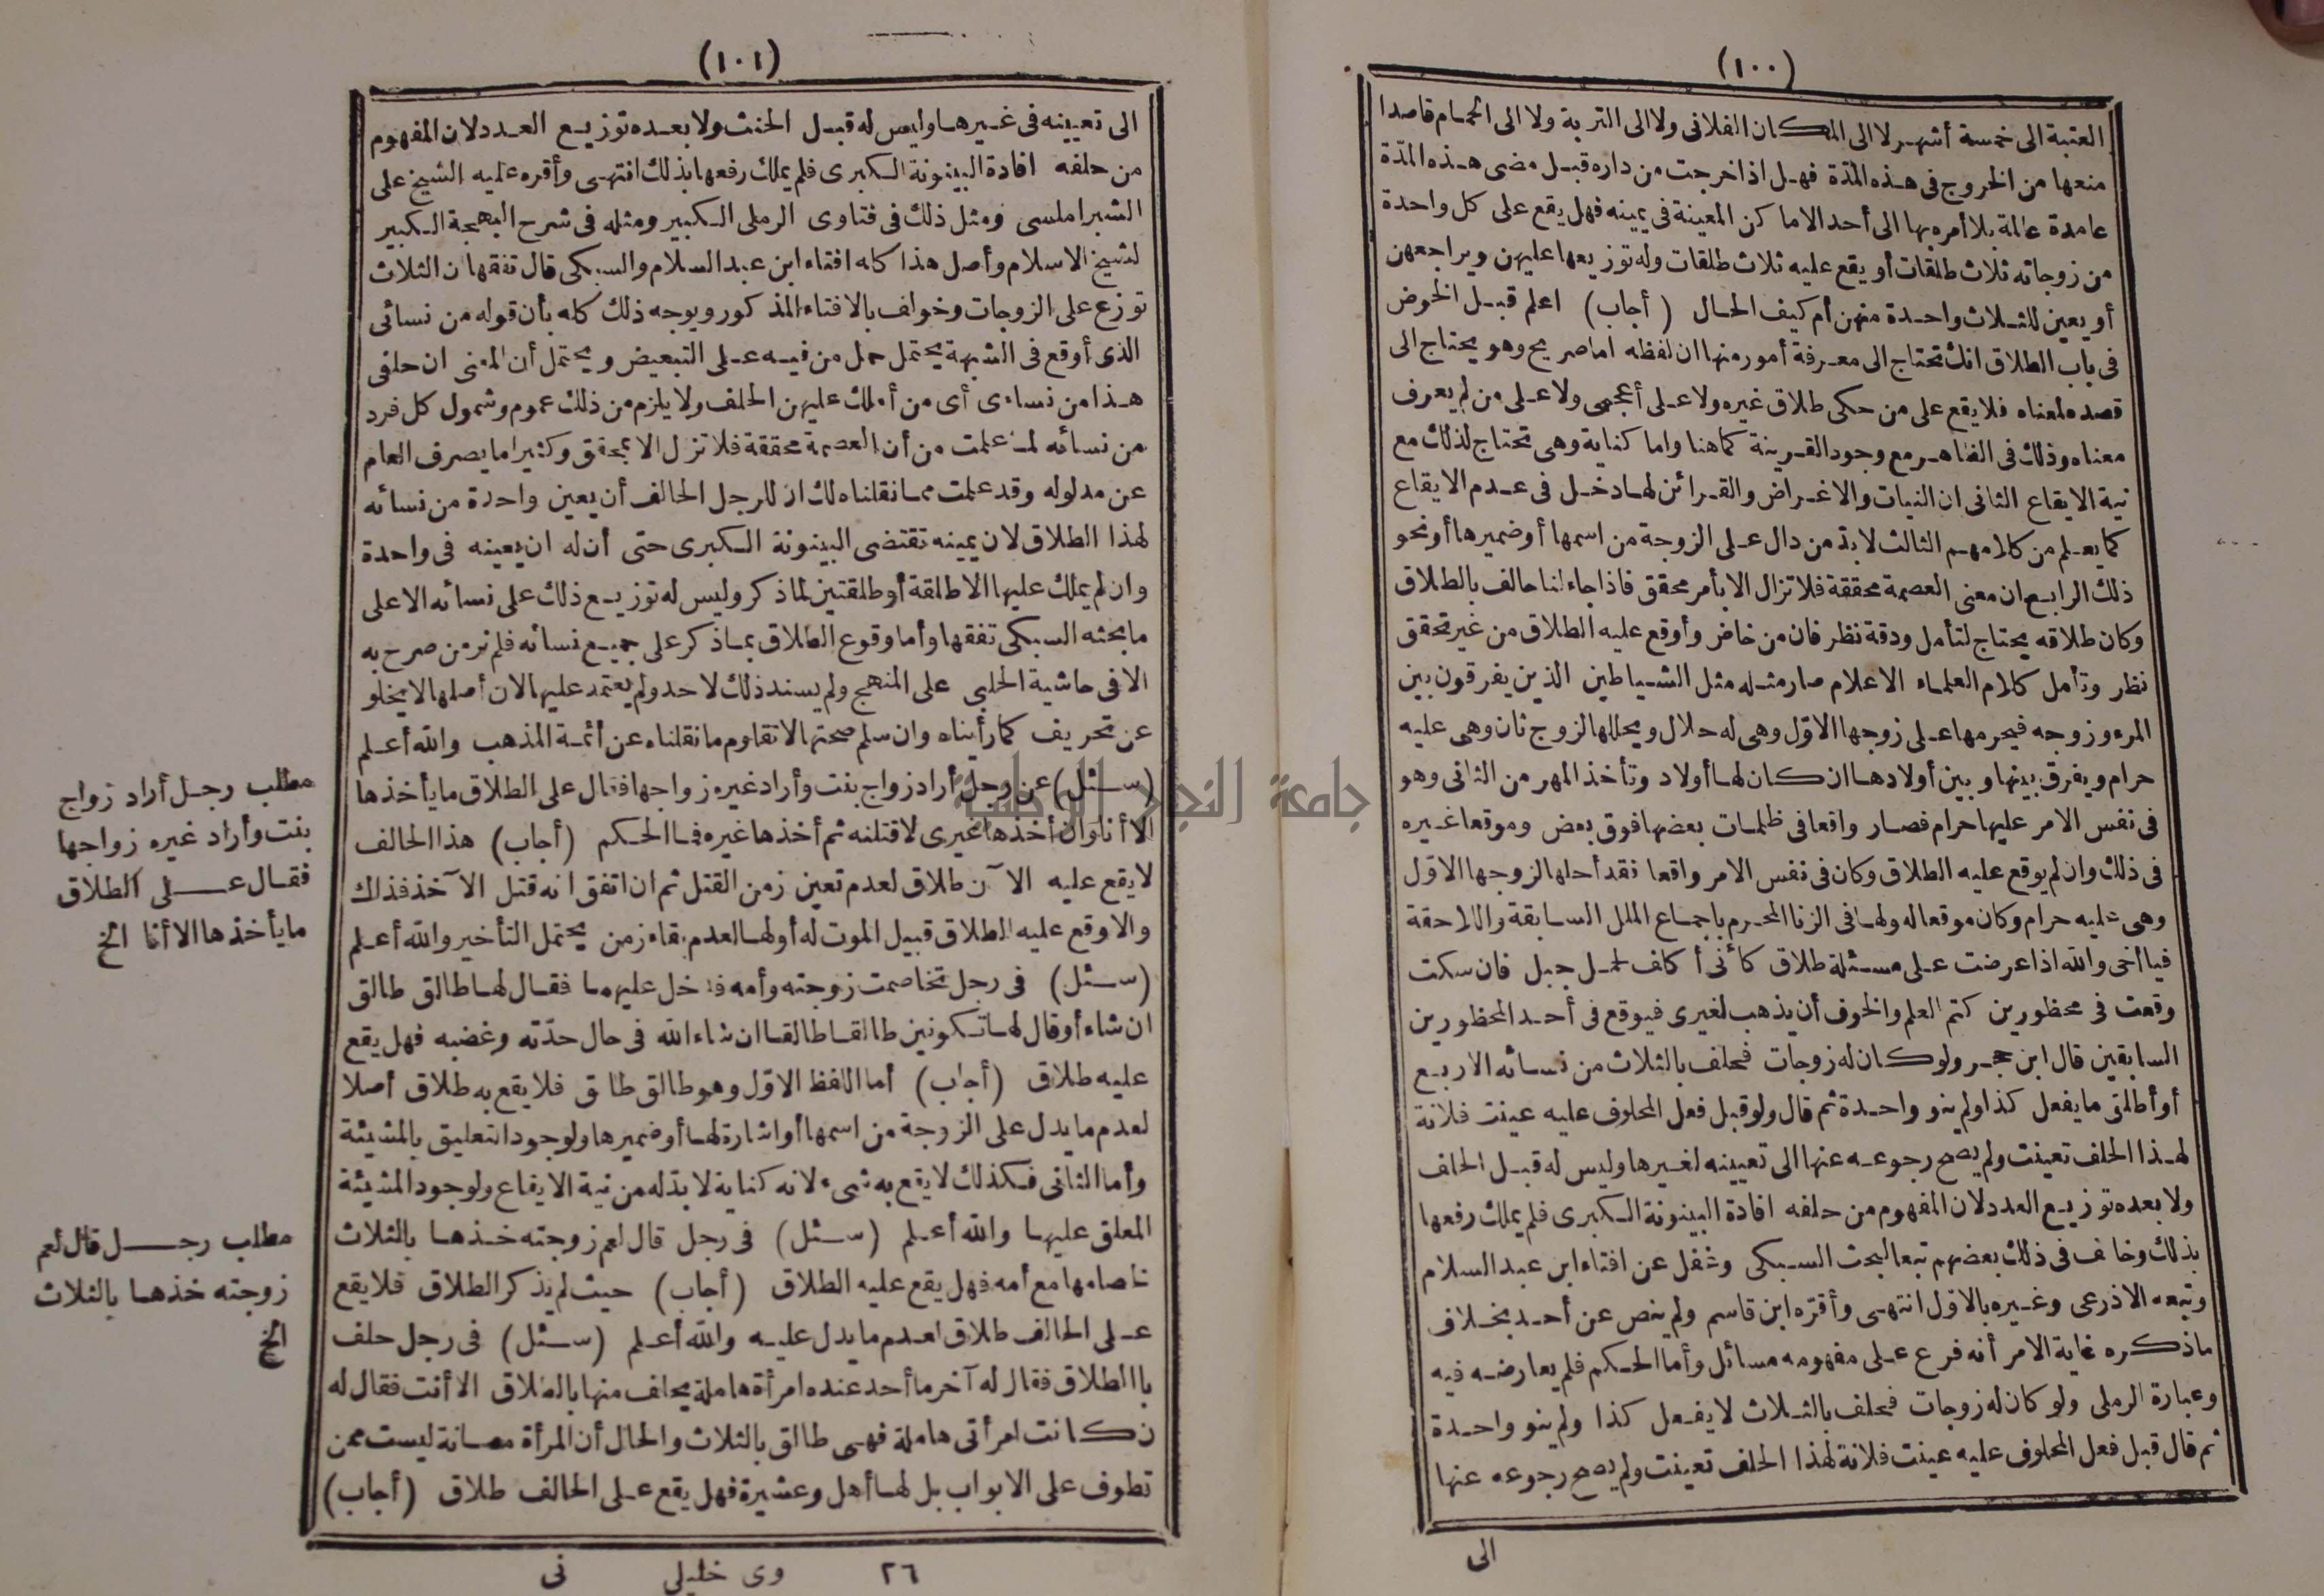 (١٠٠)
العتبة الى خمسة أشهر لا الى المكان الفلانى ولا الى التربة ولا الى الحمام قاصدا
منعها من الخروج فى هذه المدّة فهل اذا خرجت من داره قبل مضى هذه المدّة
عامدة عالمة بلا أمره بها الى أحد الاماكن المعينة فى يمينه فهل يقع على كل واحدة
من زوجاته ثلاث طلقات أو يقع عليه ثلاث طلقات وله توزيعها عليهن ويراجعهن
أو يعين للثلاث واحدة منهن أم كيف الحال (أجاب) اعلم قبل الخوض
فى باب الطلاق انك تحتاج الى معرفة أمور منها ان لفظه اما صريح وهو يحتاج الى
قصده لمعناه فلا يقع على من حكى طلاق غيره ولا على أعجمى ولا على من لم يعرف
معناه وذلك فى الظاهر مع وجود القرينة كما هنا واما كناية وهى تحتاج لذلك مع
نية الايقاع الثانى ان النيات والاغراض والقرائن لها دخل فى عدم الايقاع
كما يعلم من كلامهم الثالث لا بدّ من دال على الزوجة من اسمها أو ضميرها أو نحو
ذلك الرابع ان معنى العصمة محققة فلا تزال الا بأمر محقق فاذا جاء لنا حالف بالطلاق
وكان طلاقه يحتاج لتأمل ودقة نظر فان من خاض وأوقع عليه الطلاق من غير تحقق
نظر وتأمل كلام العلماء الاعلام صار مثله مثل الشياطين الذين يفرقون بين
المرء وزوجه فيحرمها على زوجها الاوّل وهى له حلال ويحللها لزوج ثان وهى عليه
حرام ويفرق بينها وبين أولادها ان كان لها أولاد وتأخذ المهر من الثانى وهو
فى نفس الامر عليها حرام فصار واقعا فى ظلمات بعضها فوق بعض وموقعا غيره
فى ذلك وان لم يوقع عليه الطلاق وكان فى نفس الامر واقعا فقد أحلها لزوجها الاوّل
وهى عليه حرام وكان موقعا له ولها فى الزنا المحرم باجماع الملل السابقة واللاحقة
فيا أخى والله اذا عرضت على مسئلة طلاق كأنى أكاف لحمل جبل فان سكت
وقعت فى محظورين كتم العلم والخوف أن يذهب لغيرى فيوقع فى أحد المحظورين
السابقين قال ابن حجر ولو كان له زوجات فحلف بالثلاث من نسائه الاربع
أو أطلق ما يفعل كذا ولم ينو واحدة ثم قال ولو قبل فعل المحلوف عليه عينت فلانة
لهذا الحلف تعينت ولم يصح رجوعه عنها الى تعيينه لغيرها وليس له قبل الحلف
ولا بعده توزيع العدد لان المفهوم من حلفه افادة البينونة الكبرى فلم يملك رفعها
بذلك وخالف فى ذلك بعضهم تبعا لبحث السبكى وغفل عن افتاء ابن عبد السلام
وتبعه الاذرعى وغيره بالاول انتهى وأقرّه ابن قاسم ولم ينص عن أحد بخلاف
ما ذكره غاية الامر أنه فرع على مفهومه مسائل وأما الحكم فلم يعارضه فيه
وعبارة الرملى ولو كان له زوجات فحلف بالثلاث لا يفعل كذا ولم ينو واحدة
ثم قال قبل فعل المحلوف عليه عينت فلانة لهذا الحلف تعينت ولم يصح رجوعه عنها
الى
(١٠١)
الى تعيينه فى غيرها وليس له قبل الحنث ولا بعده توزيع العدد لان المفهوم
من حلفه افادة البينونة الكبرى فلم يملك رفعها بذلك انتهى وأقره عليه الشيخ على
الشبراملسى ومثل ذلك فى فتاوى الرملى الكبير ومثله فى شرح البهجة الكبير
لشيخ الاسلام وأصل هذا كله افتاء ابن عبد السلام والسبكى قال تفقها ان الثلاث
توزع على الزوجات وخولف بالافتاء المذكور ويوجه ذلك كله بأن قوله من نسائى
الذى أوقع فى الشبهة يحتمل حمل من فيه على التبعيض ويحتمل أن المعنى ان حلفى
هذا من نساءى أى من أملك عليهن الحلف ولا يلزم من ذلك عموم وشمول كل فرد
من نسائه لما علمت من أن العصمة محققة فلا تزل الا بمحقق وكثيرا ما يصرف العام
عن مدلوله وقد علمت مما نقلناه لك ان للرجل الحالف أن يعين واحدة من نسائه
لهذا الطلاق لان يمينه تقتضى البينونة الكبرى حتى أن له ان يعينه فى واحدة
وان لم يملك عليها الا طلقة أو طلقتين لما ذكر وليس له توزيع ذلك على نسائه الا على
ما بحثه السبكى تفقها وأما وقوع الطلاق بما ذكر على جميع نسائه فلم نر من صرح به
الا فى حاشية الحلبى على المنهج ولم يسند ذلك لاحد ولم يعتمد عليها لان أصلها لا يخلو
عن تحريف كما رأيناه وان سلم صحتها لا تقاوم ما نقلناه عن أئمة المذهب والله أعلم
(سئل) عن رجل أراد زواج بنت وأراد غيره زواجها فقال على الطلاق ما يأخذها
الا أنا وان أخذها غيرى لاقتلنه ثم أخذها غيره فما الحكم (أجاب) هذا الحالف
لا يقع عليه الآن طلاق لعدم تعين زمن القتل ثم ان اتفق انه قتل الآخذ فذاك
والا وقع عليه الطلاق قبيل الموت له أو لها لعدم بقاء زمن يحتمل التأخير والله أعلم
(سئل) فى رجل تخاصمت زوجته وأمه فدخل عليهما فقال لها طالق طالق
ان شاء أو قال لها تكونين طالقا طالقا ان شاء الله فى حال حدّته وغضبه فهل يقع
عليه طلاق (أجاب) أما اللفظ الاوّل وهو طالق طالق فلا يقع به طلاق أصلا
لعدم ما يدل على الزوجة من اسمها أو اشارة لها أو ضميرها ولوجود التعليق بالمشيئة
وأما الثانى فكذلك لا يقع به شىء لانه كناية لا بدّ له من نية الايقاع ولوجود المشيئة
المعلق عليها والله أعلم (سئل) فى رجل قال لعم زوجته خذها بالثلاث
خاصامها مع أمه فهل يقع عليه الطلاق (أجاب) حيث لم يذكر الطلاق فلا يقع
على الحالف طلاق لعدم ما يدل عليه والله أعلم (سئل) فى رجل حلف
با الطلاق فقال له آخر ما أحد عنده امرأة هاملة يحلف منها بالطلاق الا أنت فقال له
ن كانت امرأتى هاملة فهى طالق بالثلاث والحال أن المرأة مصانة ليست ممن
تطوف على الابواب بل لها أهل وعشيرة فهل يقع على الحالف طلاق (أجاب)
مطلب رجل أراد زواج
بنت وأراد غيره زواجها
فقال على الطلاق
ما يأخذها الا أنا الخ
مطلب رجل قال لعم
زوجته خذها بالثلاث
الخ
٢٦ وى خليلى نى
جامعة النجاح الوطنية